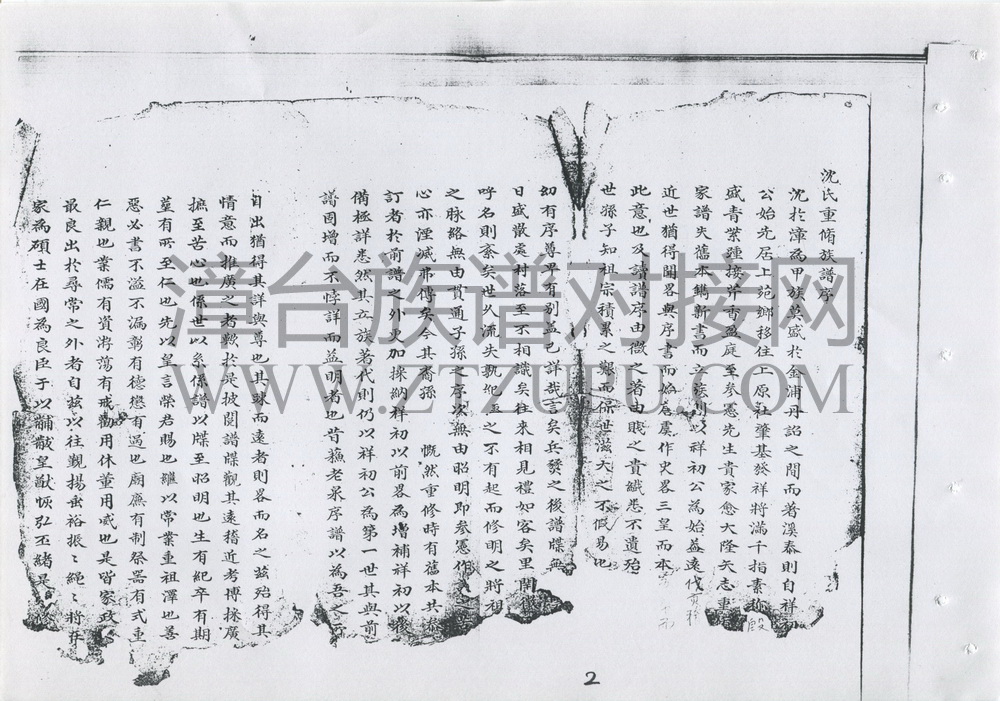 沈氏重脩族譜序
沈於漳為甲族莫盛於金浦丹詔之間而著溪泰則自祥初
公始先居上苑鄉移住上原社肇基發祥將滿千指素稱殷
盛青業踵接芹香盈庭至參憲先生貴家愈大隆矣志重
家譜失舊本鐫新書而立應則以祥初公為始蓋遠代
近世猶得聞畧與序書而始虙虞作史畧三皇而本
此意也及請譜序由微之著由賤之貴纖悉不遺殆
世孫子知祖宗積累之艱而保世滋大之不假易也
幼有序尊卑有別蓋已詳哉言矣兵發之後譜牒無
日盛散處村落至不相識矣往來相見禮如客矣里閈
呼名則紊矣世乆流失孰紀孟之不有起而修明之將祖
之脉絡無由貫通子孫之序次無由昭明即參憲作之
心亦湮滅弗傳矣今其裔孫 慨然重修時有舊本共
訂者於前譜之外更加採納祥初以前畧為增補祥初以後
備極詳悉然其立族著代則仍以祥初公為第一世其與前
譜固增而不悖詳而益明者也昔蘇老泉序譜以為吾之所
自出猶得其詳與尊也其疎而遠者則畧而名之茲殆得其
情意而推廣之者歟於是披閱譜牒觀其遠稽近考博採廣
摭至苦心也係世以系係譜以牒至昭明也生有紀卒有期
塟有所至仁也先以皇言榮君賜也繼以常業重祖澤也善
惡必書不溢不漏彰有德懲有過也廟廡有制祭器有式重
仁親也業儒有資游蕩有戒勸用休董用威也是皆家政
最良出於尋常之外者自茲以往觀揚垂裕振〻繩〻將在
家為碩士在國為良臣于以黼黻皇猷恢弘丕緒是
2
漳台族谱对接网
WWW.ZTZUPU.COM